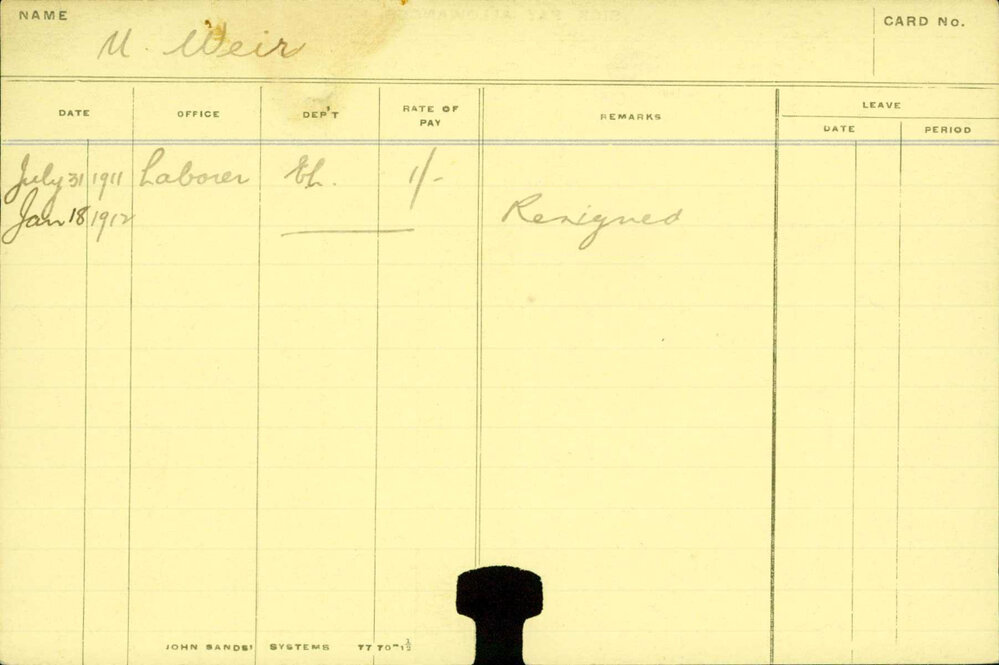 NAME
Weir
CARD No.
DATE OFFICE DEP'T RATE OF PAY REMARKS LEAVE
DATE PERIOD
July 31 1911 Laborer 1/-
Jan 18 1912 Resigned
JOHN SANDS' SYSTEMS